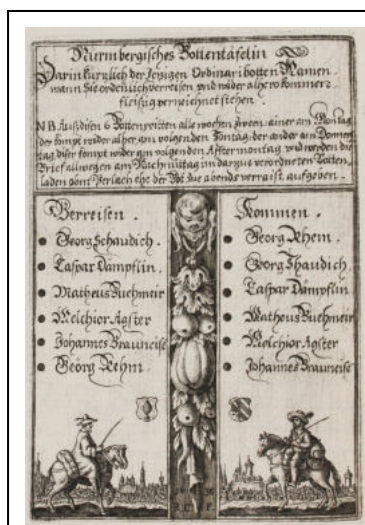 Nürmbergisches Bottentäfelin
Darin kürtzlich der Jezigen Ordinari botten Namen.
wann Sie ordenlich verreisen und wider alher kommen
fleissig verzeichnet stehen.
NB Auß disen 6 Botten reitten alle wochen Zween: ainer am Montag
der kompt wider alher am volgenden Sontag: der ander am Donners
tag diser kompt wider am volgenden Aftermontag und werden die
Brief allwegen am Nachmittag im darzue verordneten Botten
laden beim Perlach ehe der Bot zue abends verraist aufgeben.
Verreisen.
Georg Schaudich.
Caspar Dampflin.
Matheus Buehmeir
Melchior Agster
Johannes Brauneise
Georg Rehm.
Kommen.
Georg Rhem.
Georg Shaudich.
Caspar Dampflin
Matheus Buehmeir
Melchior Agster
Johannes Brauneise